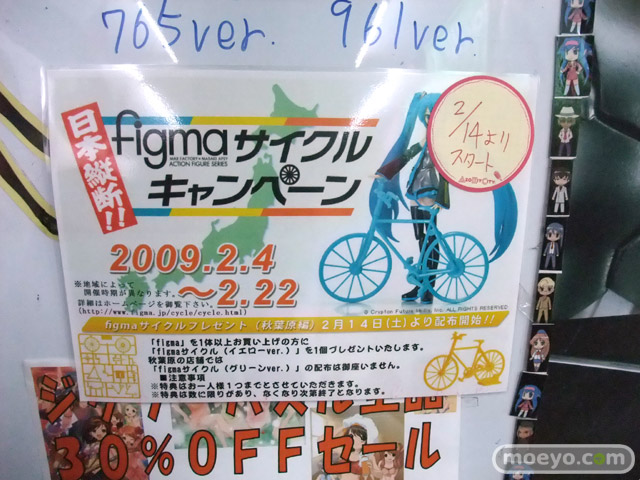 765ver. 961ver.
日本縦断!!
figmaサイクル
MAX FACTORY×MASAKI APSY
ACTION FIGURE SERIES
キャンペーン
2/14より
スタート
2009.2.4
～2.22
※地域によって
開催時期が異なります。
詳細はホームページを御覧下さい。
(http://www.figma.jp/cycle/cycle.html)
© Crypton Future Media, Inc. ALL RIGHTS RESERVED
figmaサイクルプレゼント（秋葉原編）２月１４日(土)より配布開始!!
「figma」を１体以上お買い上げの方に
「figmaサイクル（イエローver.）」を１個プレゼントいたします。
秋葉原の店舗では
「figmaサイクル（グリーンver.）」の配布は御座いません。
■注意事項
※特典はお一人様１つまでとさせていただきます。
※特典は数に限りがあり、なくなり次第終了となります。
３０％ＯＦＦセール
moeyo.com